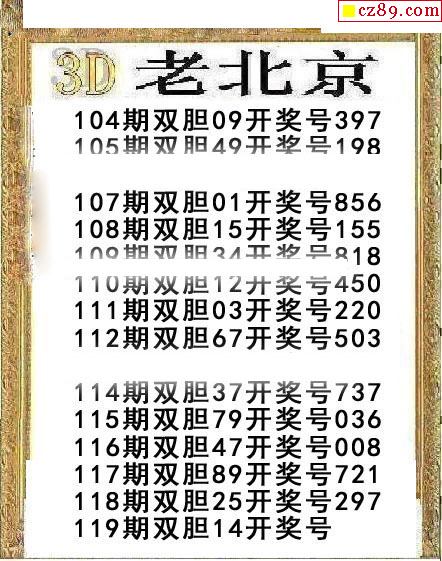 cz89.com
3D 老北京
104期双胆09开奖号397
105期双胆49开奖号198
107期双胆01开奖号856
108期双胆15开奖号155
109期双胆34开奖号818
110期双胆12开奖号450
111期双胆03开奖号220
112期双胆67开奖号503
114期双胆37开奖号737
115期双胆79开奖号036
116期双胆47开奖号008
117期双胆89开奖号721
118期双胆25开奖号297
119期双胆14开奖号